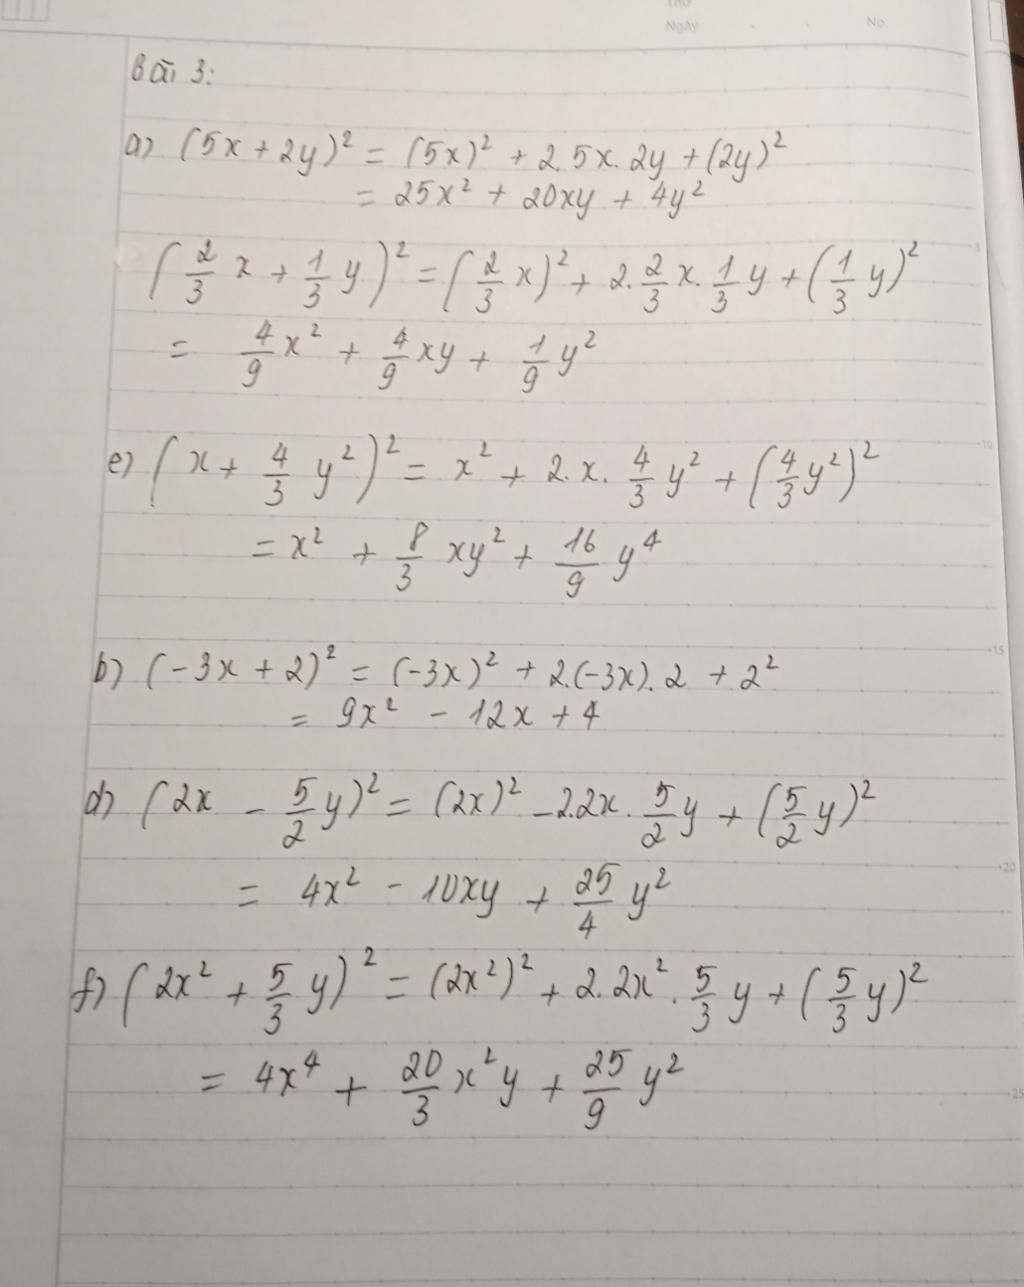 Thứ
Ngày No.
Bài 3:
a) (5x + 2y)² = (5x)² + 2.5x.2y + (2y)²
= 25x² + 20xy + 4y²
(2/3 x + 1/3 y)² = (2/3 x)² + 2.2/3 x.1/3 y + (1/3 y)²
= 4/9 x² + 4/9 xy + 1/9 y²
e) (x + 4/3 y²)² = x² + 2.x.4/3 y² + (4/3 y²)²
= x² + 8/3 xy² + 16/9 y⁴
b) (-3x + 2)² = (-3x)² + 2.(-3x).2 + 2²
= 9x² - 12x + 4
d) (2x - 5/2 y)² = (2x)² - 2.2x.5/2 y + (5/2 y)²
= 4x² - 10xy + 25/4 y²
f) (2x² + 5/3 y)² = (2x²)² + 2.2x².5/3 y + (5/3 y)²
= 4x⁴ + 20/3 x²y + 25/9 y²
5
10
15
20
25